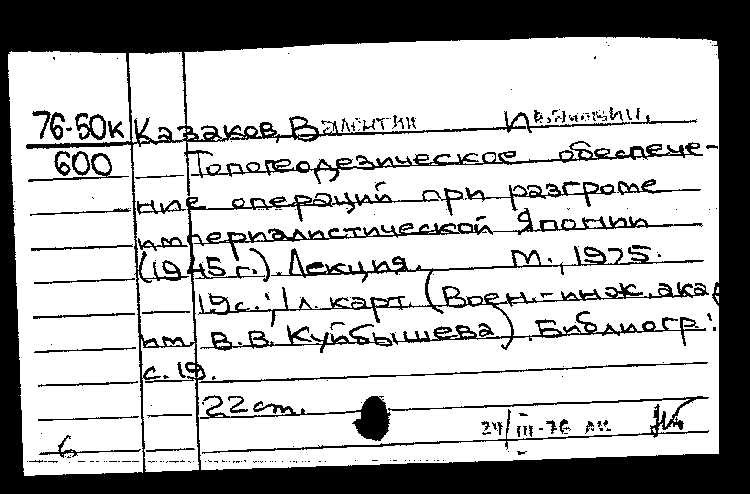 76-50к Казаков, Валентин Иванович.
600 Топогеодезическое обеспече-
ние операций при разгроме
империалистической Японии
(1945 г.). Лекция. М., 1975.
19с.; 1 л. карт. (Воен.-инж. акад
им. В.В. Куйбышева). Библиогр.:
с. 19.
22 cm.
24/III-76
6